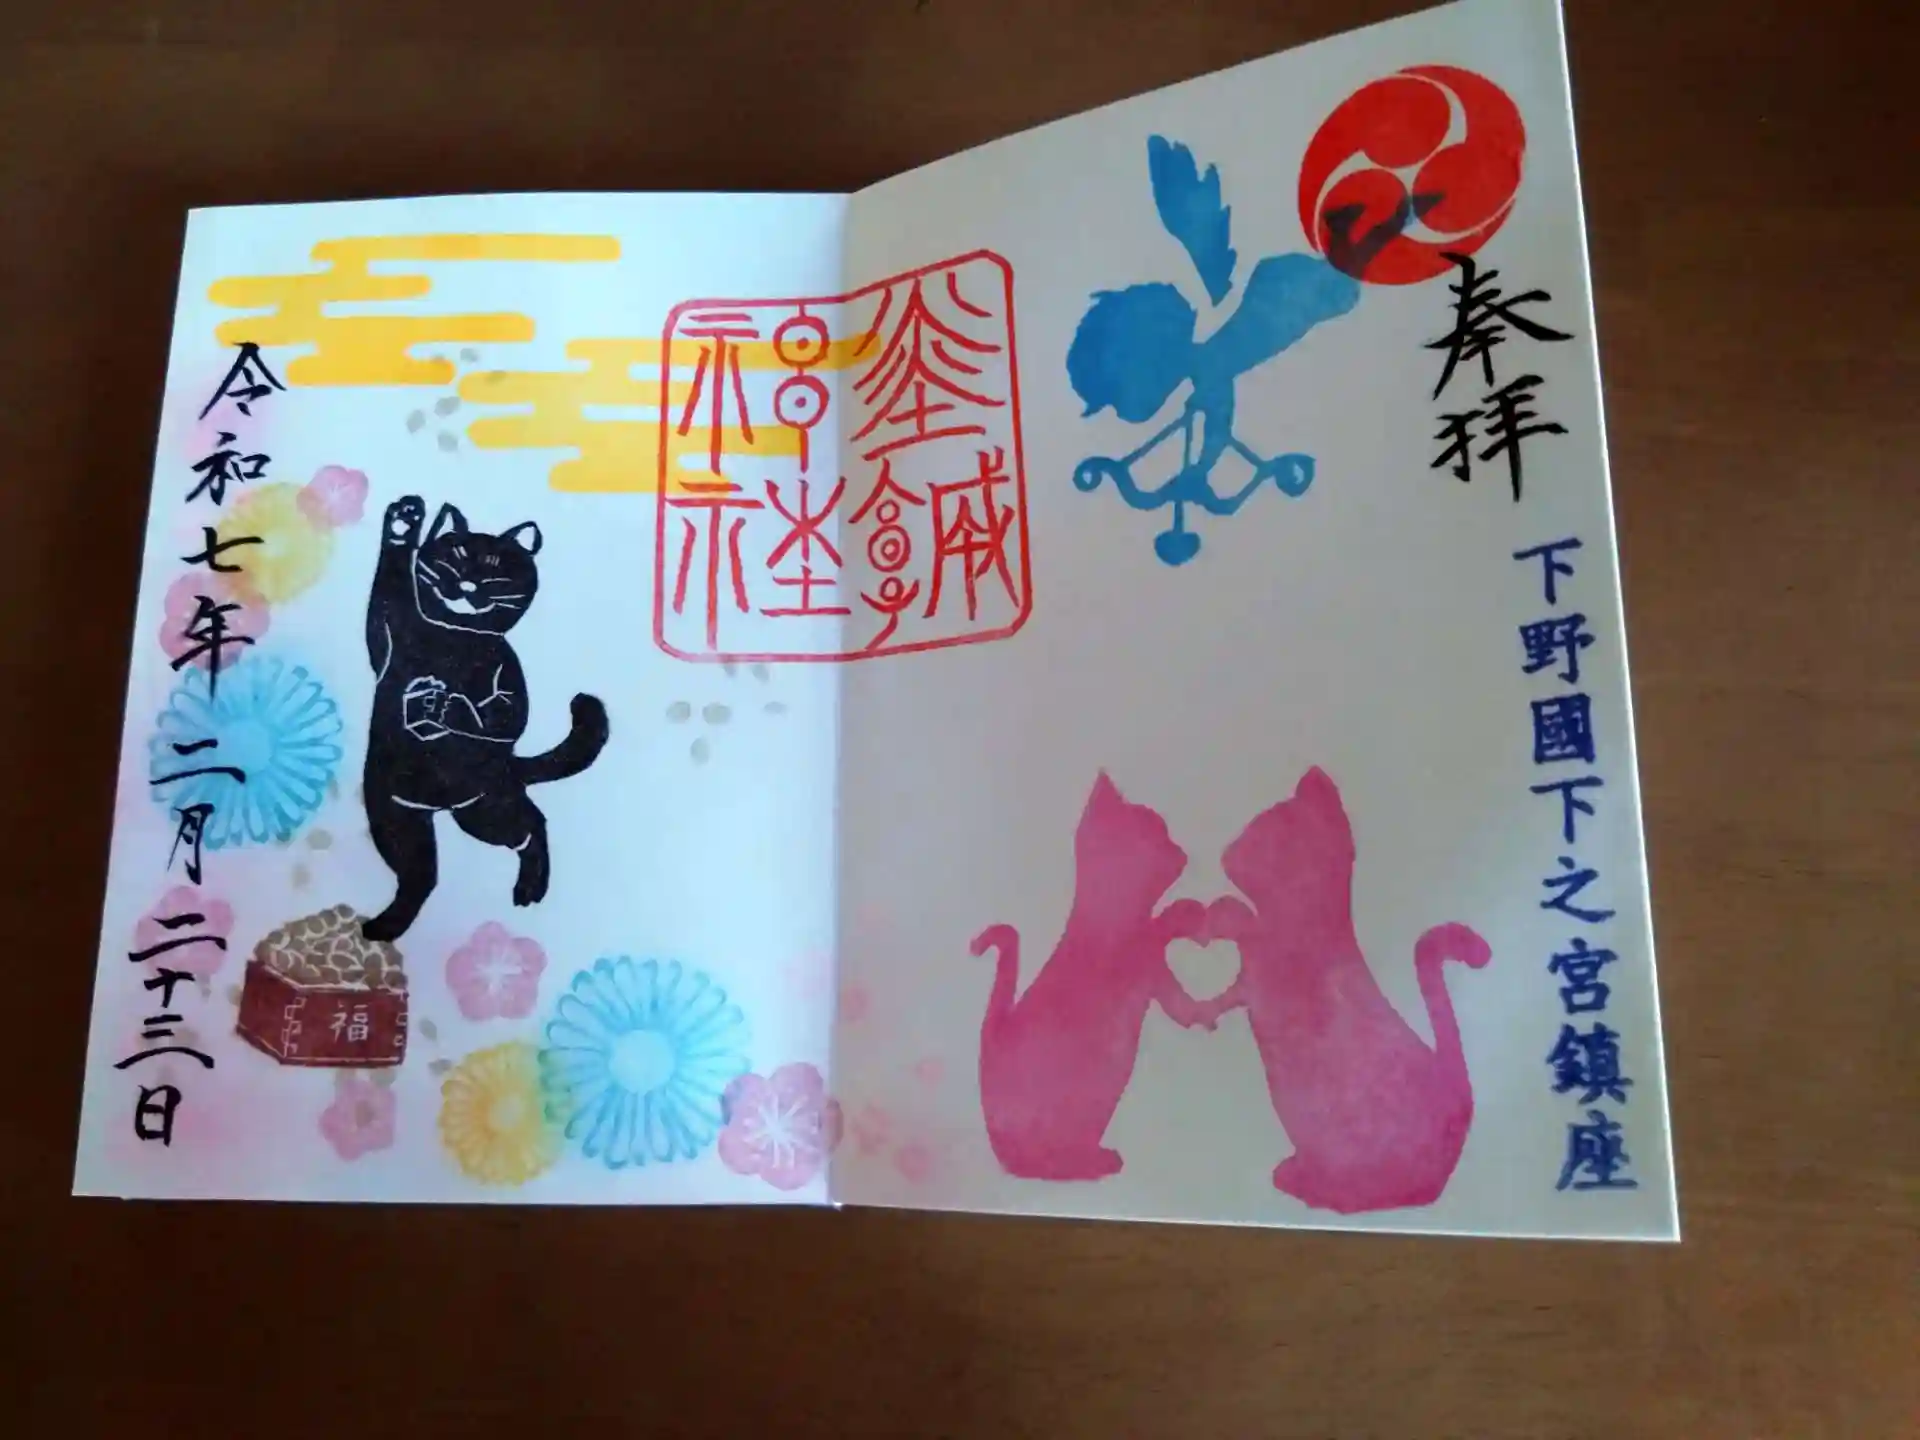 奉拝
下野國下之宮鎮座
神社
福
令和七年二月二十三日